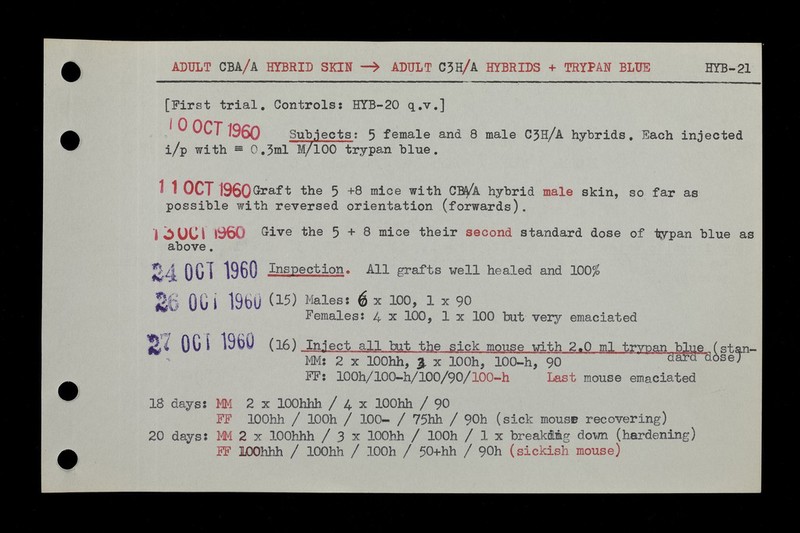 ADULT CBA/A HYBRID SKIN → ADULT C3H/A HYBRIDS + TRYPAN BLUE HYB-21
[First trial. Controls: HYB-20 q.v.]
10 OCT 1960 Subjects: 5 female and 8 male C3H/A hybrids. Each injected
i/p with = 0.3ml M/100 trypan blue.
11 OCT 1960 Graft the 5 +8 mice with CBA/A hybrid male skin, so far as
possible with reversed orientation (forwards).
13 OCT 1960 Give the 5 + 8 mice their second standard dose of trypan blue as
above.
24 OCT 1960 Inspection. All grafts well healed and 100%
26 OCT 1960 (15) Males: 6 x 100, 1 x 90
Females: 4 x 100, 1 x 100 but very emaciated
27 OCT 1960 (16) Inject all but the sick mouse with 2.0 ml trypan blue (stan-
dard dose)
MM: 2 x 100hh, 3 x 100h, 100-h, 90
FF: 100h/100-h/100/90/100-h Last mouse emaciated
18 days: MM 2 x 100hhh / 4 x 100hh / 90
FF 100hh / 100h / 100- / 75hh / 90h (sick mouse recovering)
20 days: MM 2 x 100hhh / 3 x 100hh / 100h / 1 x breaking down (hardening)
FF 100hhh / 100hh / 100h / 50+hh / 90h (sickish mouse)